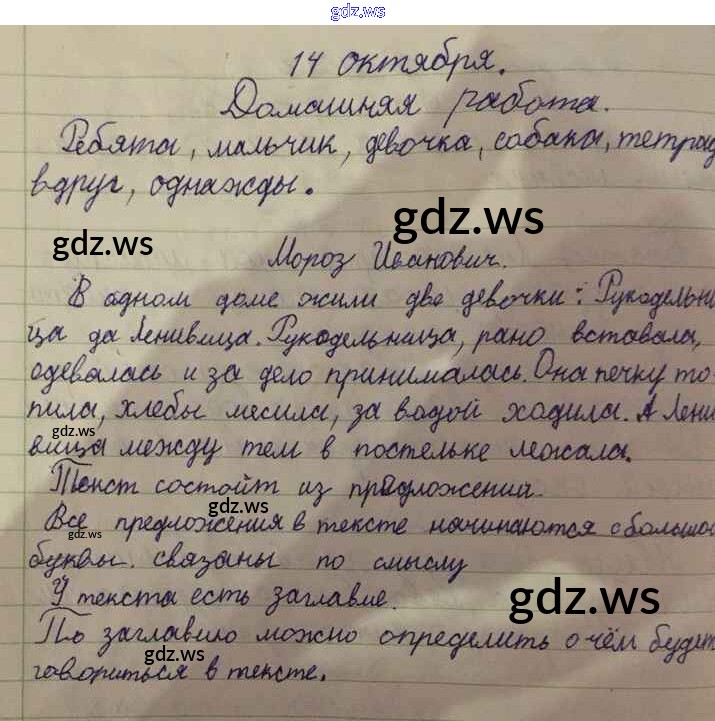 gdz.ws
14 октября.
Домашняя работа.
Ребята, мальчик, девочка, собака, тетрад
вдруг, однажды.
gdz.ws
gdz.ws
Мороз Иванович.
В одном доме жили две девочки: Рукодельни
ца да Ленивица. Рукодельница, рано вставала,
одевалась и за дело принималась. Она печку то-
пила, хлебы месила, за водой ходила. А Лени
gdz.ws
вица между тем в постельке лежала.
Текст состоит из предложений.
gdz.ws
Все предложения в тексте начинаются с большой
gdz.ws
буквы. связаны по смыслу
У текста есть заглавие.
gdz.ws
По заглавию можно определить о чём будет
gdz.ws
говориться в тексте.